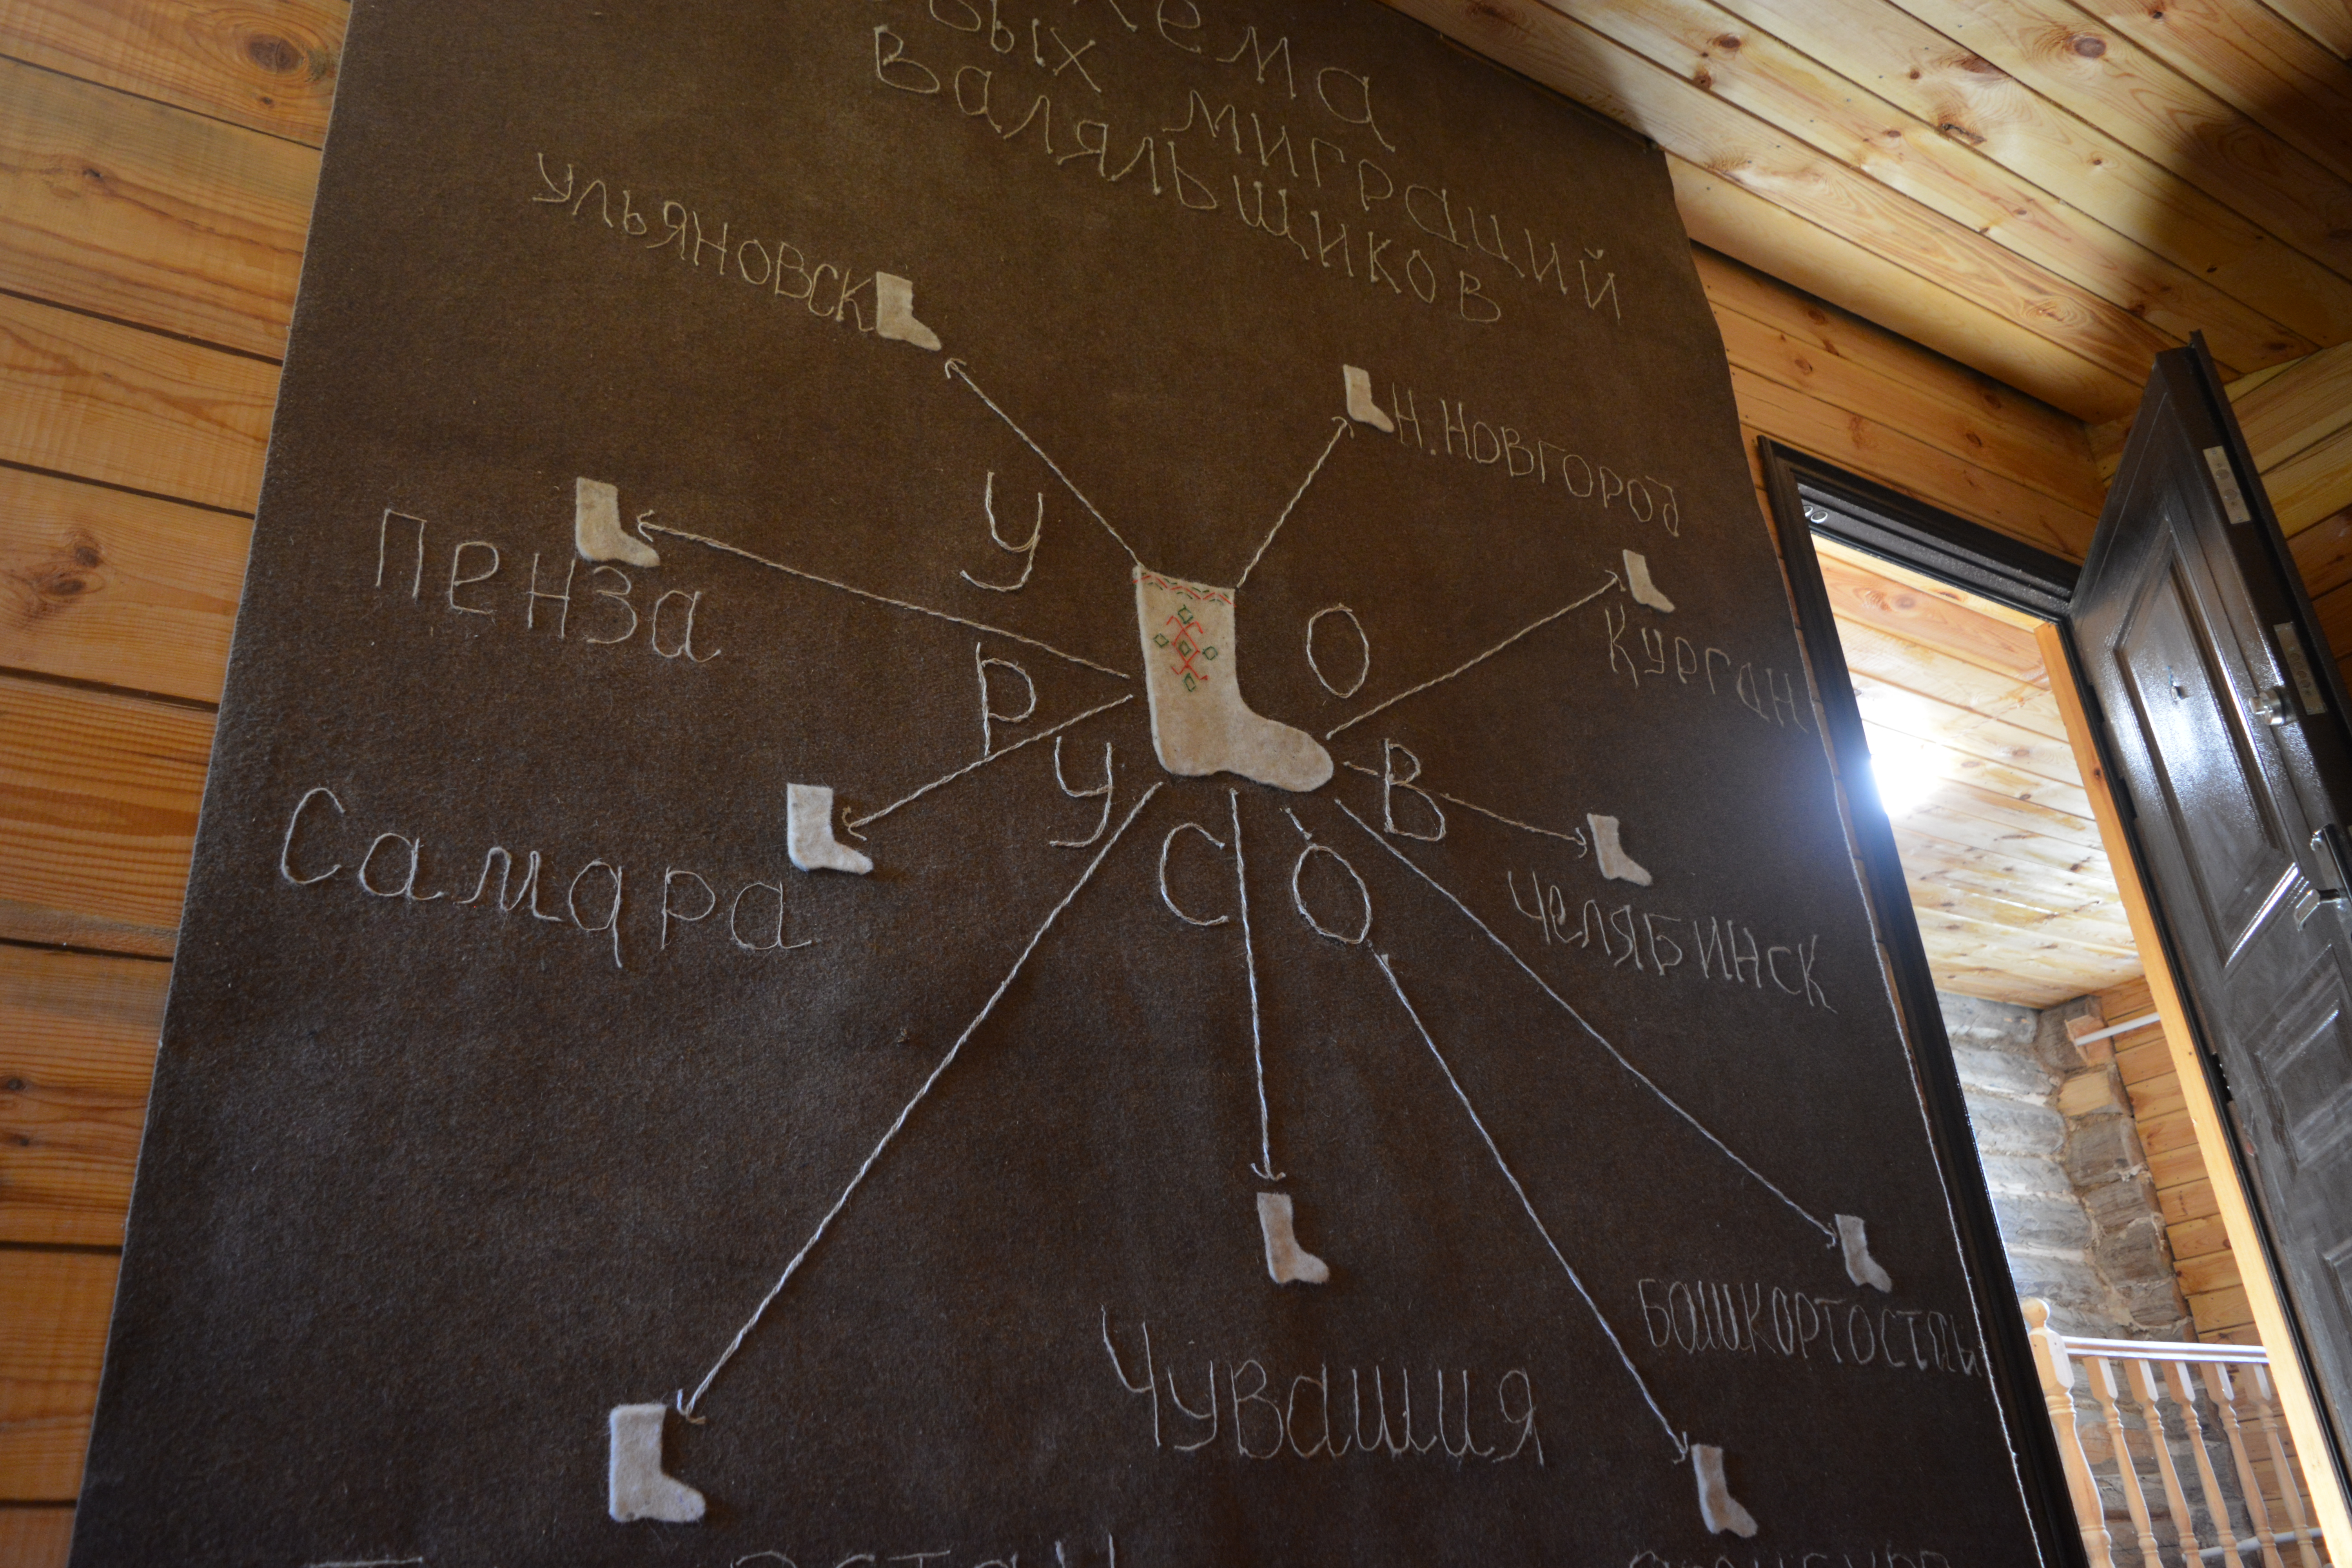 хема
вых миграций
Валяльщиков
Ульяновск
Н.Новгород
Пенза
Курган
УРУСОВО
Самара
Челябинск
Башкортостан
Чувашия